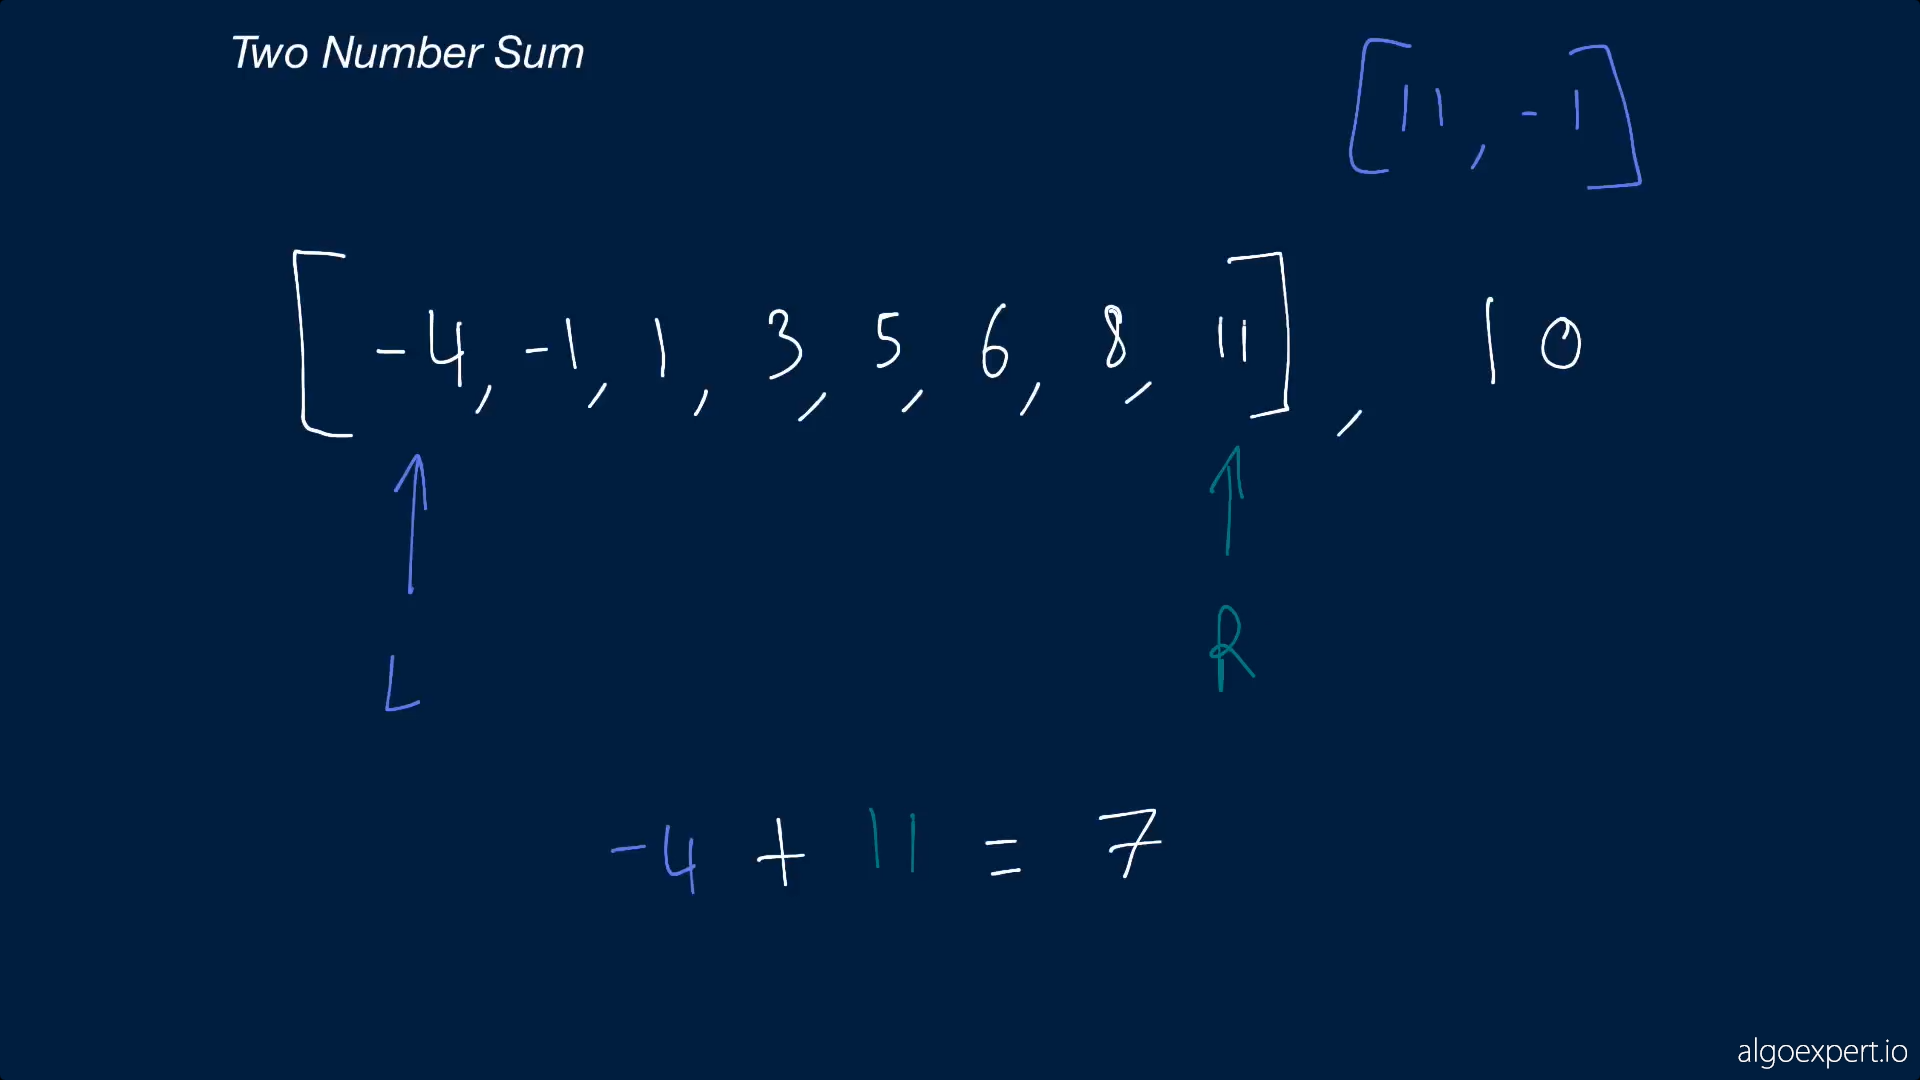 Two Number Sum
[11, -1]
[-4, -1, 1, 3, 5, 6, 8, 11], 10
L
R
-4 + 11 = 7
algoexpert.io